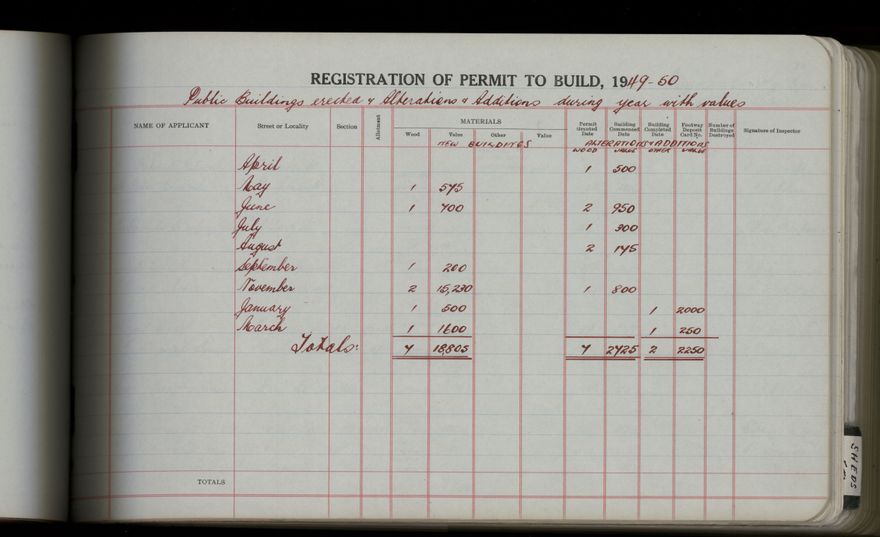 REGISTRATION OF PERMIT TO BUILD, 1949-50
Public Buildings erected & Alterations & Additions during year with values
NAME OF APPLICANT Street or Locality Section Allotment MATERIALS Permit Granted Date Building Commenced Date Building Completed Date Footway Deposit Card No. Number of Buildings Destroyed Signature of Inspector
Wood Value Other Value
NEW BUILDINGS ALTERATIONS & ADDITIONS
WOOD VALUE OTHER VALUE
April 1 500
May 1 575
June 1 700 2 950
July 1 300
August 2 175
September 1 200
November 2 15,230 1 800
January 1 500 1 2000
March 1 1600 1 250
Totals: 7 18,805 7 2725 2 2250
TOTALS
SHEDS